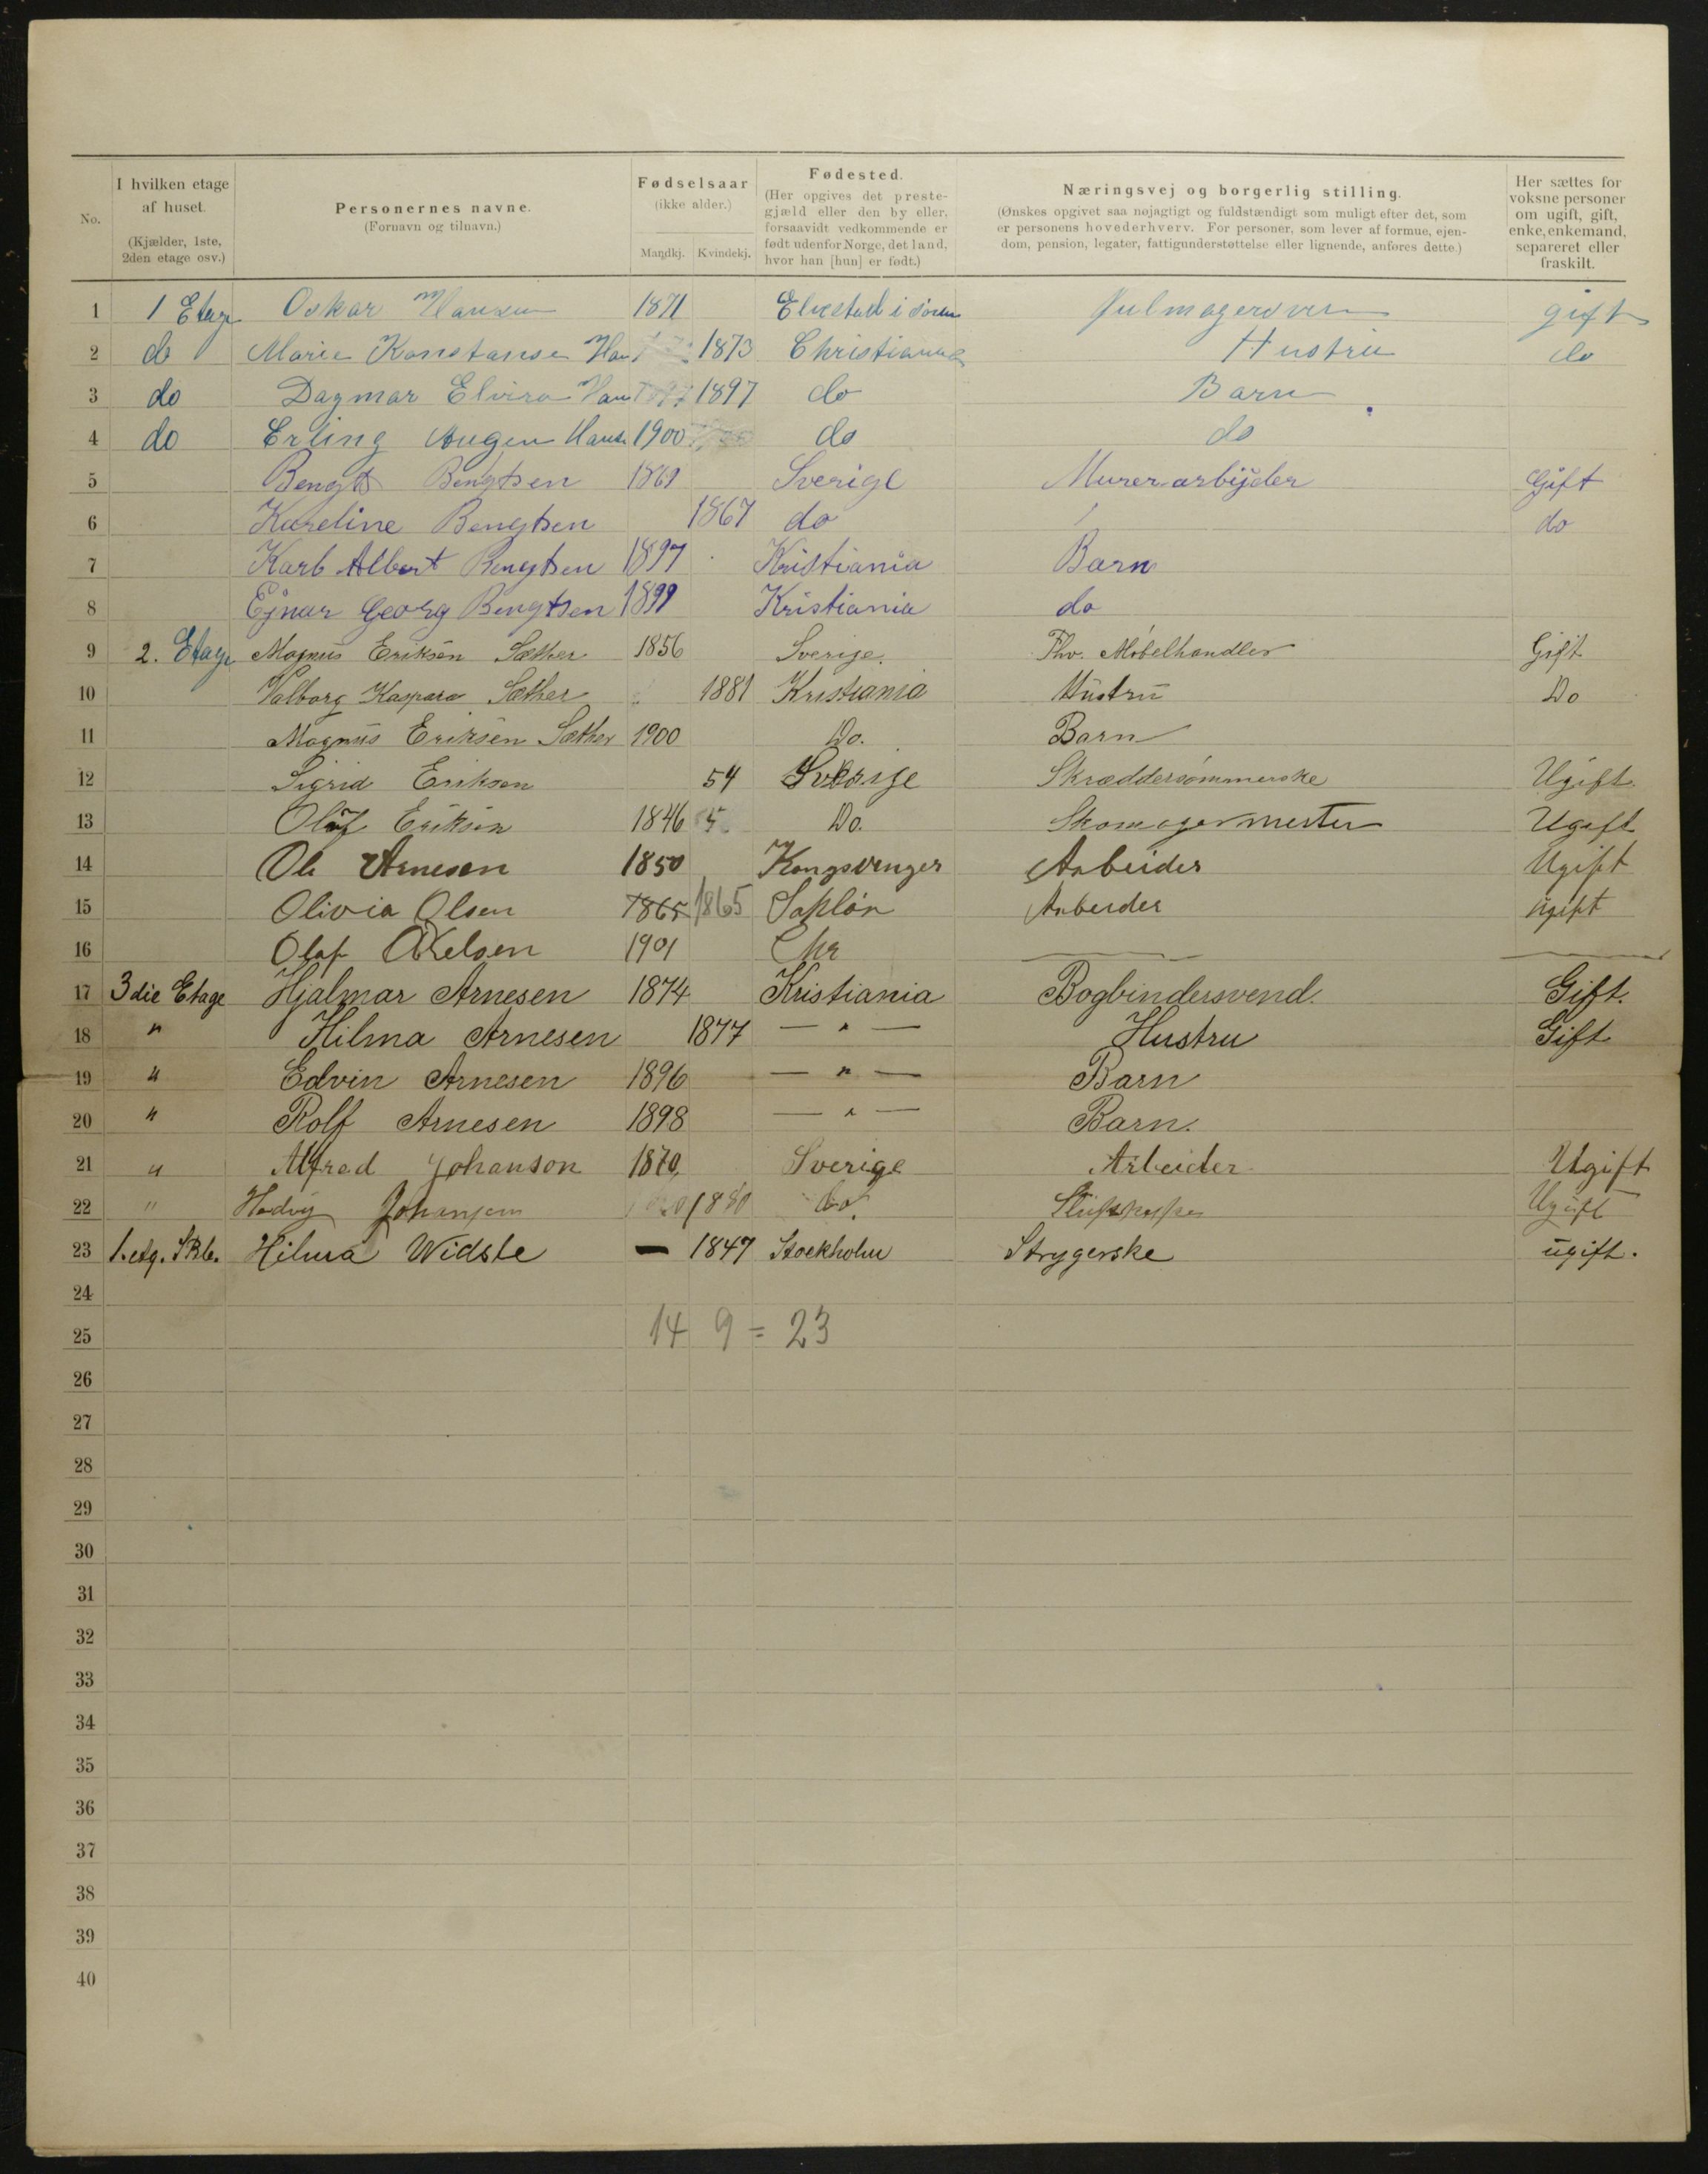 No.
I hvilken etage af huset. (Kjælder, 1ste, 2den etage osv.)
Personernes navne. (Fornavn og tilnavn.)
Fødselsaar (ikke alder.)
Mandkj. Kvindekj.
Fødested. (Her opgives det prestegjæld eller den by eller, forsaavidt vedkommende er født udenfor Norge, det land, hvor han [hun] er født.)
Næringsvej og borgerlig stilling. (Ønskes opgivet saa nøjagtigt og fuldstændigt som muligt efter det, som er personens hovederhverv. For personer, som lever af formue, ejendom, pension, legater, fattigunderstøttelse eller lignende, anføres dette.)
Her sættes for voksne personer om ugift, gift, enke, enkemand, separeret eller fraskilt.
1 1 Etage Oskar Hansen 1871 gift
2 do Marie Konstanse Han 1873 Christiania Hustru do
3 do Dagmar Elvira Han 1897 do Barn
4 do Erling Hans 1900 do do
5 Bengt Bengtsen 1861 Sverige Murerarbijder Gift
6 Kareline Bengtsen 1867 do do
7 Karl Albert Bengtsen 1897 Kristiania Barn
8 Ejnar Georg Bengtsen 1899 Kristiania do
9 2. Etage Magnus Eriksen Sæther 1856 Sverige. Fhv. Møbelhandler Gift
10 Valborg Kaspara Sæther 1881 Kristiania Hustru Do
11 Magnus Eriksen Sæther 1900 Do. Barn
12 Sigrid Erikson 54 Sverige Skræddersømmerske Ugift
13 Olof Eriksen 1846 Do. Skomagermester Ugift
14 Ole Arnesen 1850 Kongsvinger Arbeider Ugift
15 Olivia Olsen 1865 1865 Arbeider ugift
16 Olaf Axelsen 1901 Chr
17 3die Etage Hjalmar Arnesen 1874 Kristiania Bogbindersvend. Gift.
18 " Hilma Arnesen 1877 — " — Hustru Gift
19 " Edvin Arnesen 1896 — " — Barn
20 " Rolf Arnesen 1898 — " — Barn.
21 " Alfred Johanson 1870, Sverige Arbeider Ugift
22 " Hedvig Johansen 1880 do. Ugift
23 1. etg. Hilma Widste — 1847 Stockholm Strygerske ugift.
24
25 14 9 = 23
26
27
28
29
30
31
32
33
34
35
36
37
38
39
40